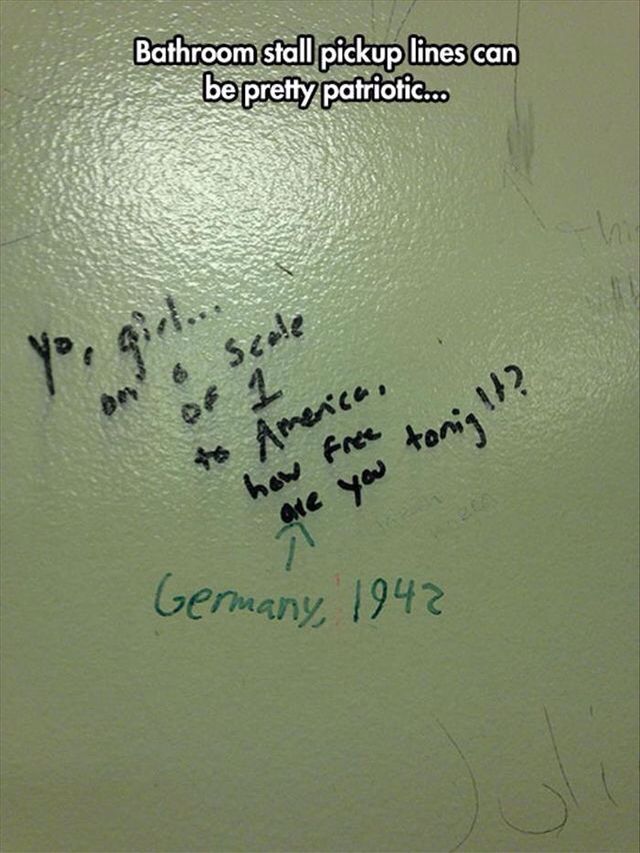 Bathroom stall pickup lines can
be pretty patriotic...
yo, girl...
on a scale
of 1
to America,
how free
are you tonight?
Germany, 1942
Juli